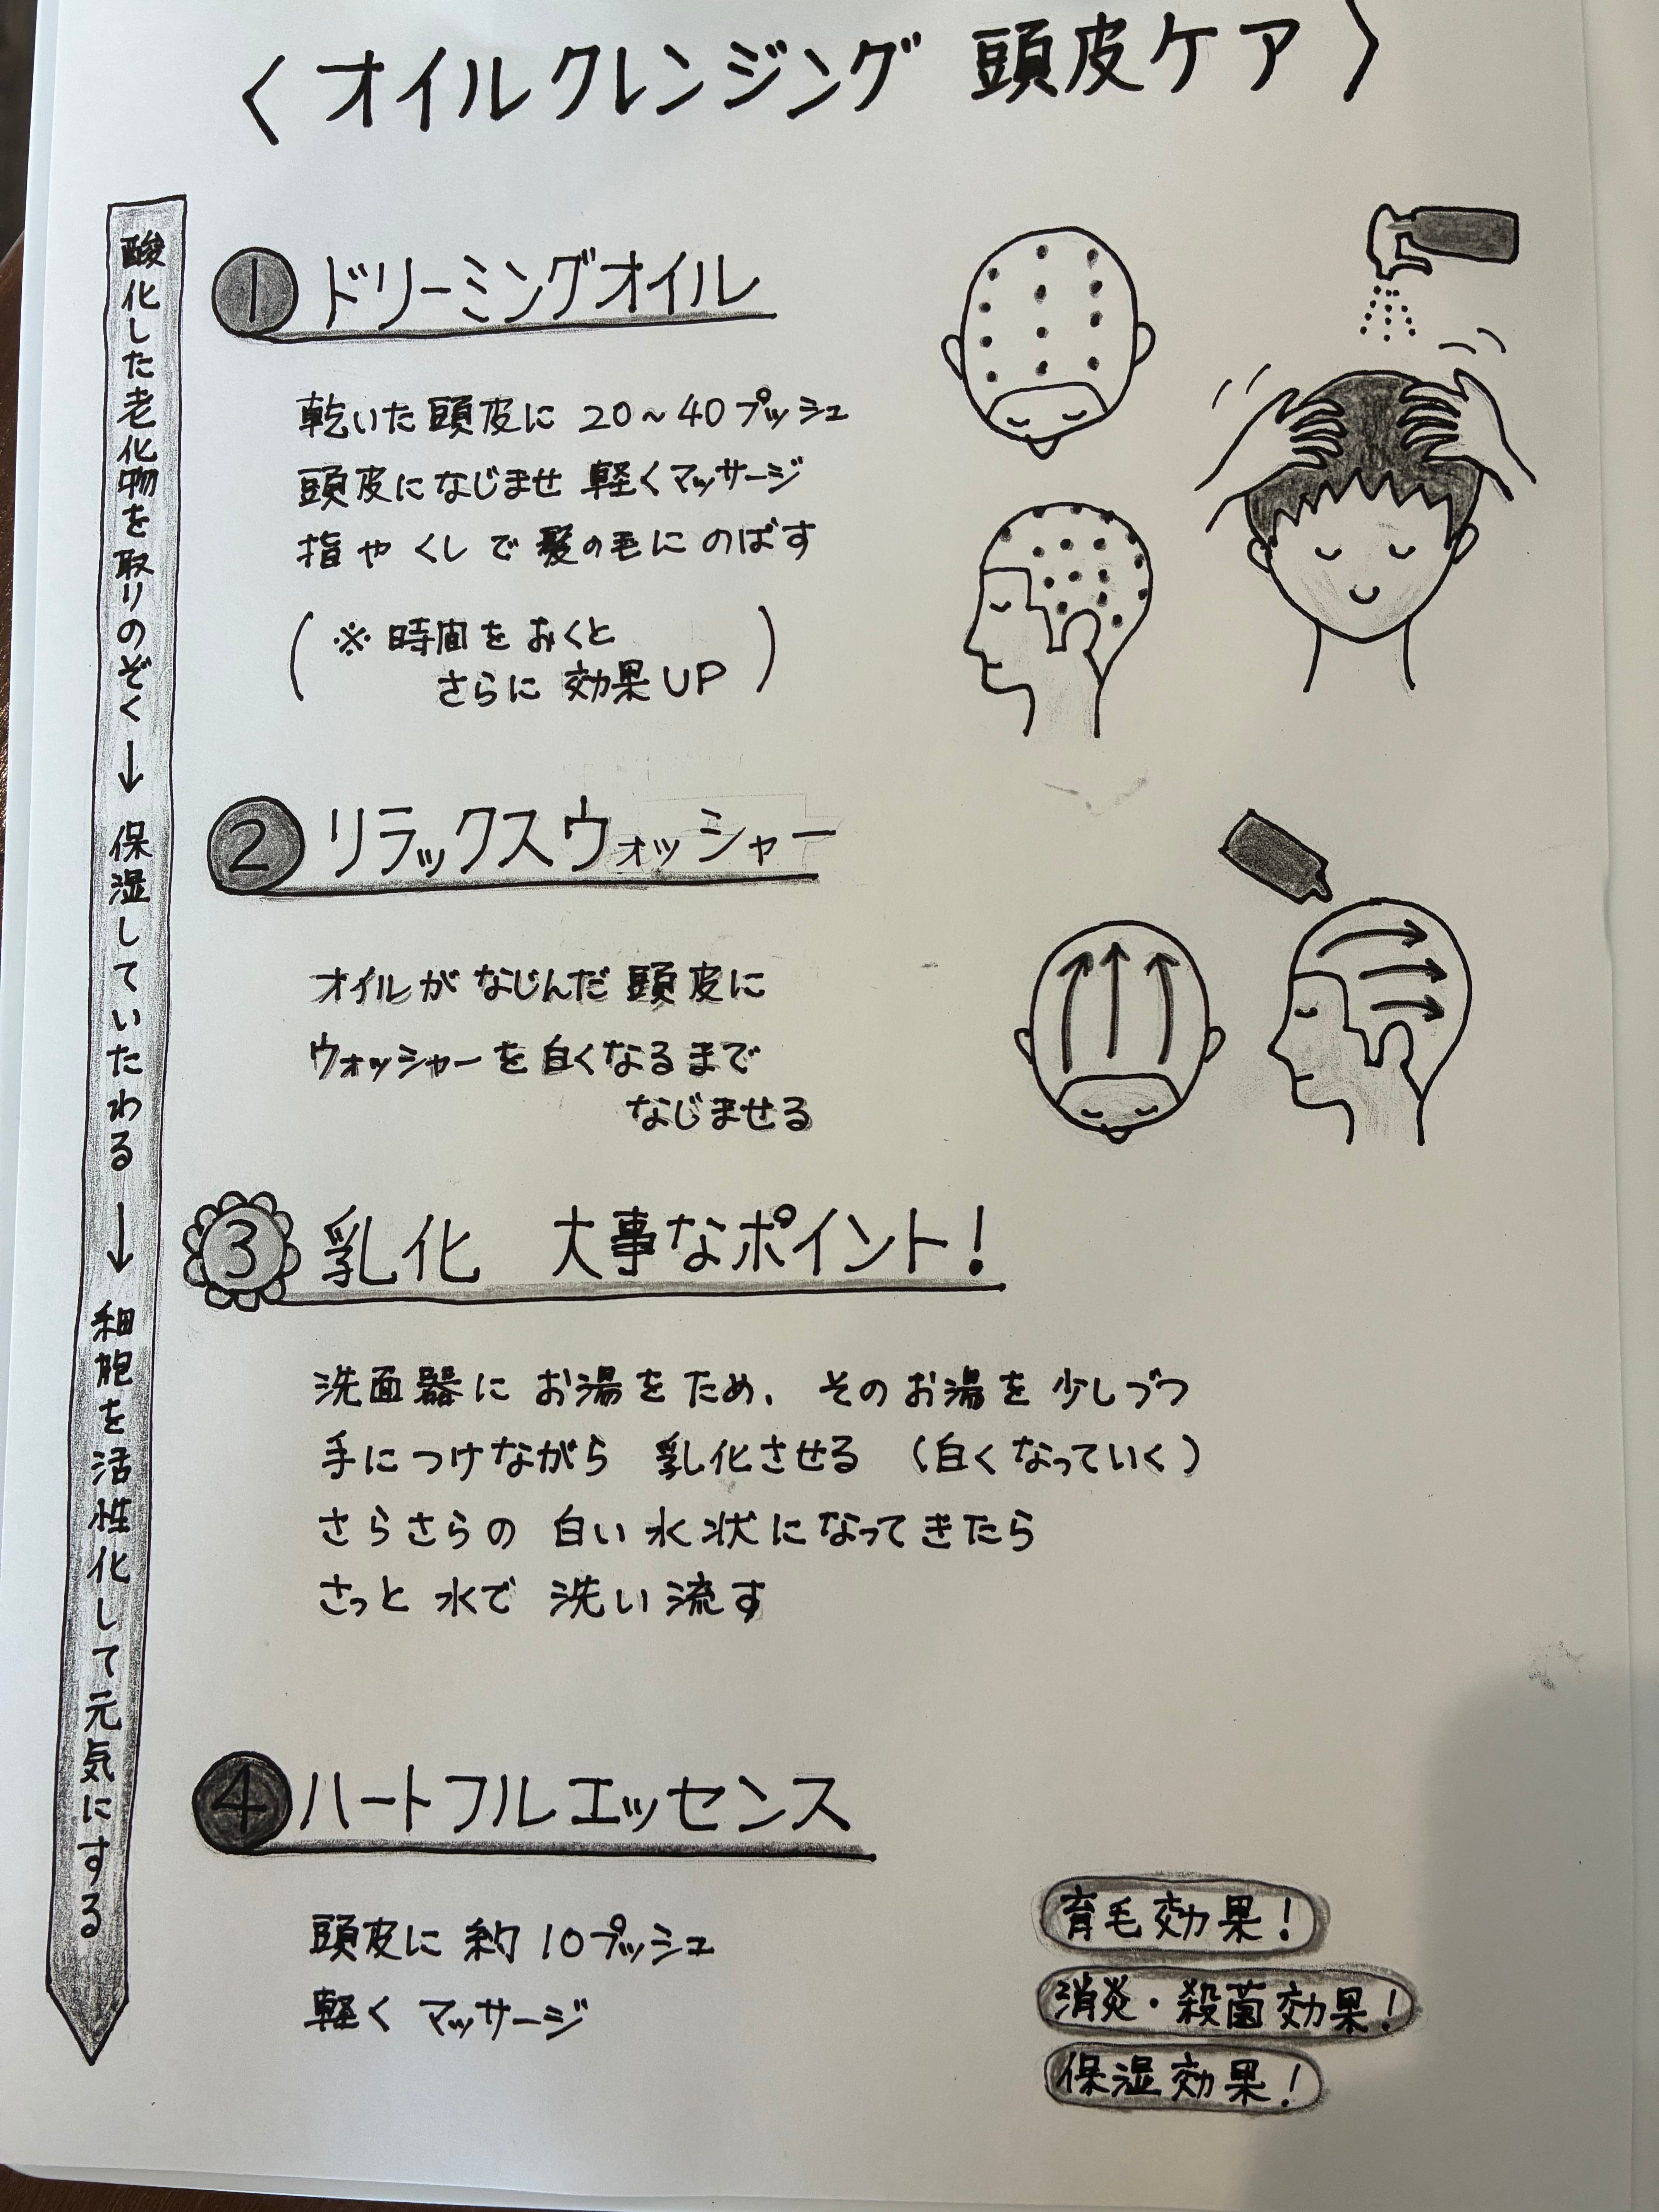 〈オイルクレンジング 頭皮ケア〉
酸化した老化物を取りのぞく→保湿していたわる→細胞を活性化して元気にする
① ドリーミングオイル
乾いた頭皮に 20~40プッシュ
頭皮になじませ 軽くマッサージ
指やくしで髪の毛にのばす
(※時間をおくと
さらに効果UP)
② リラックスウォッシャー
オイルがなじんだ頭皮に
ウォッシャーを白くなるまで
なじませる
③ 乳化 大事なポイント!
洗面器にお湯をため、そのお湯を少しづつ
手につけながら 乳化させる (白くなっていく)
さらさらの 白い水状になってきたら
さっと 水で 洗い流す
④ ハートフルエッセンス
頭皮に 約10プッシュ
軽く マッサージ
育毛効果!
消炎・殺菌効果!
保湿効果!